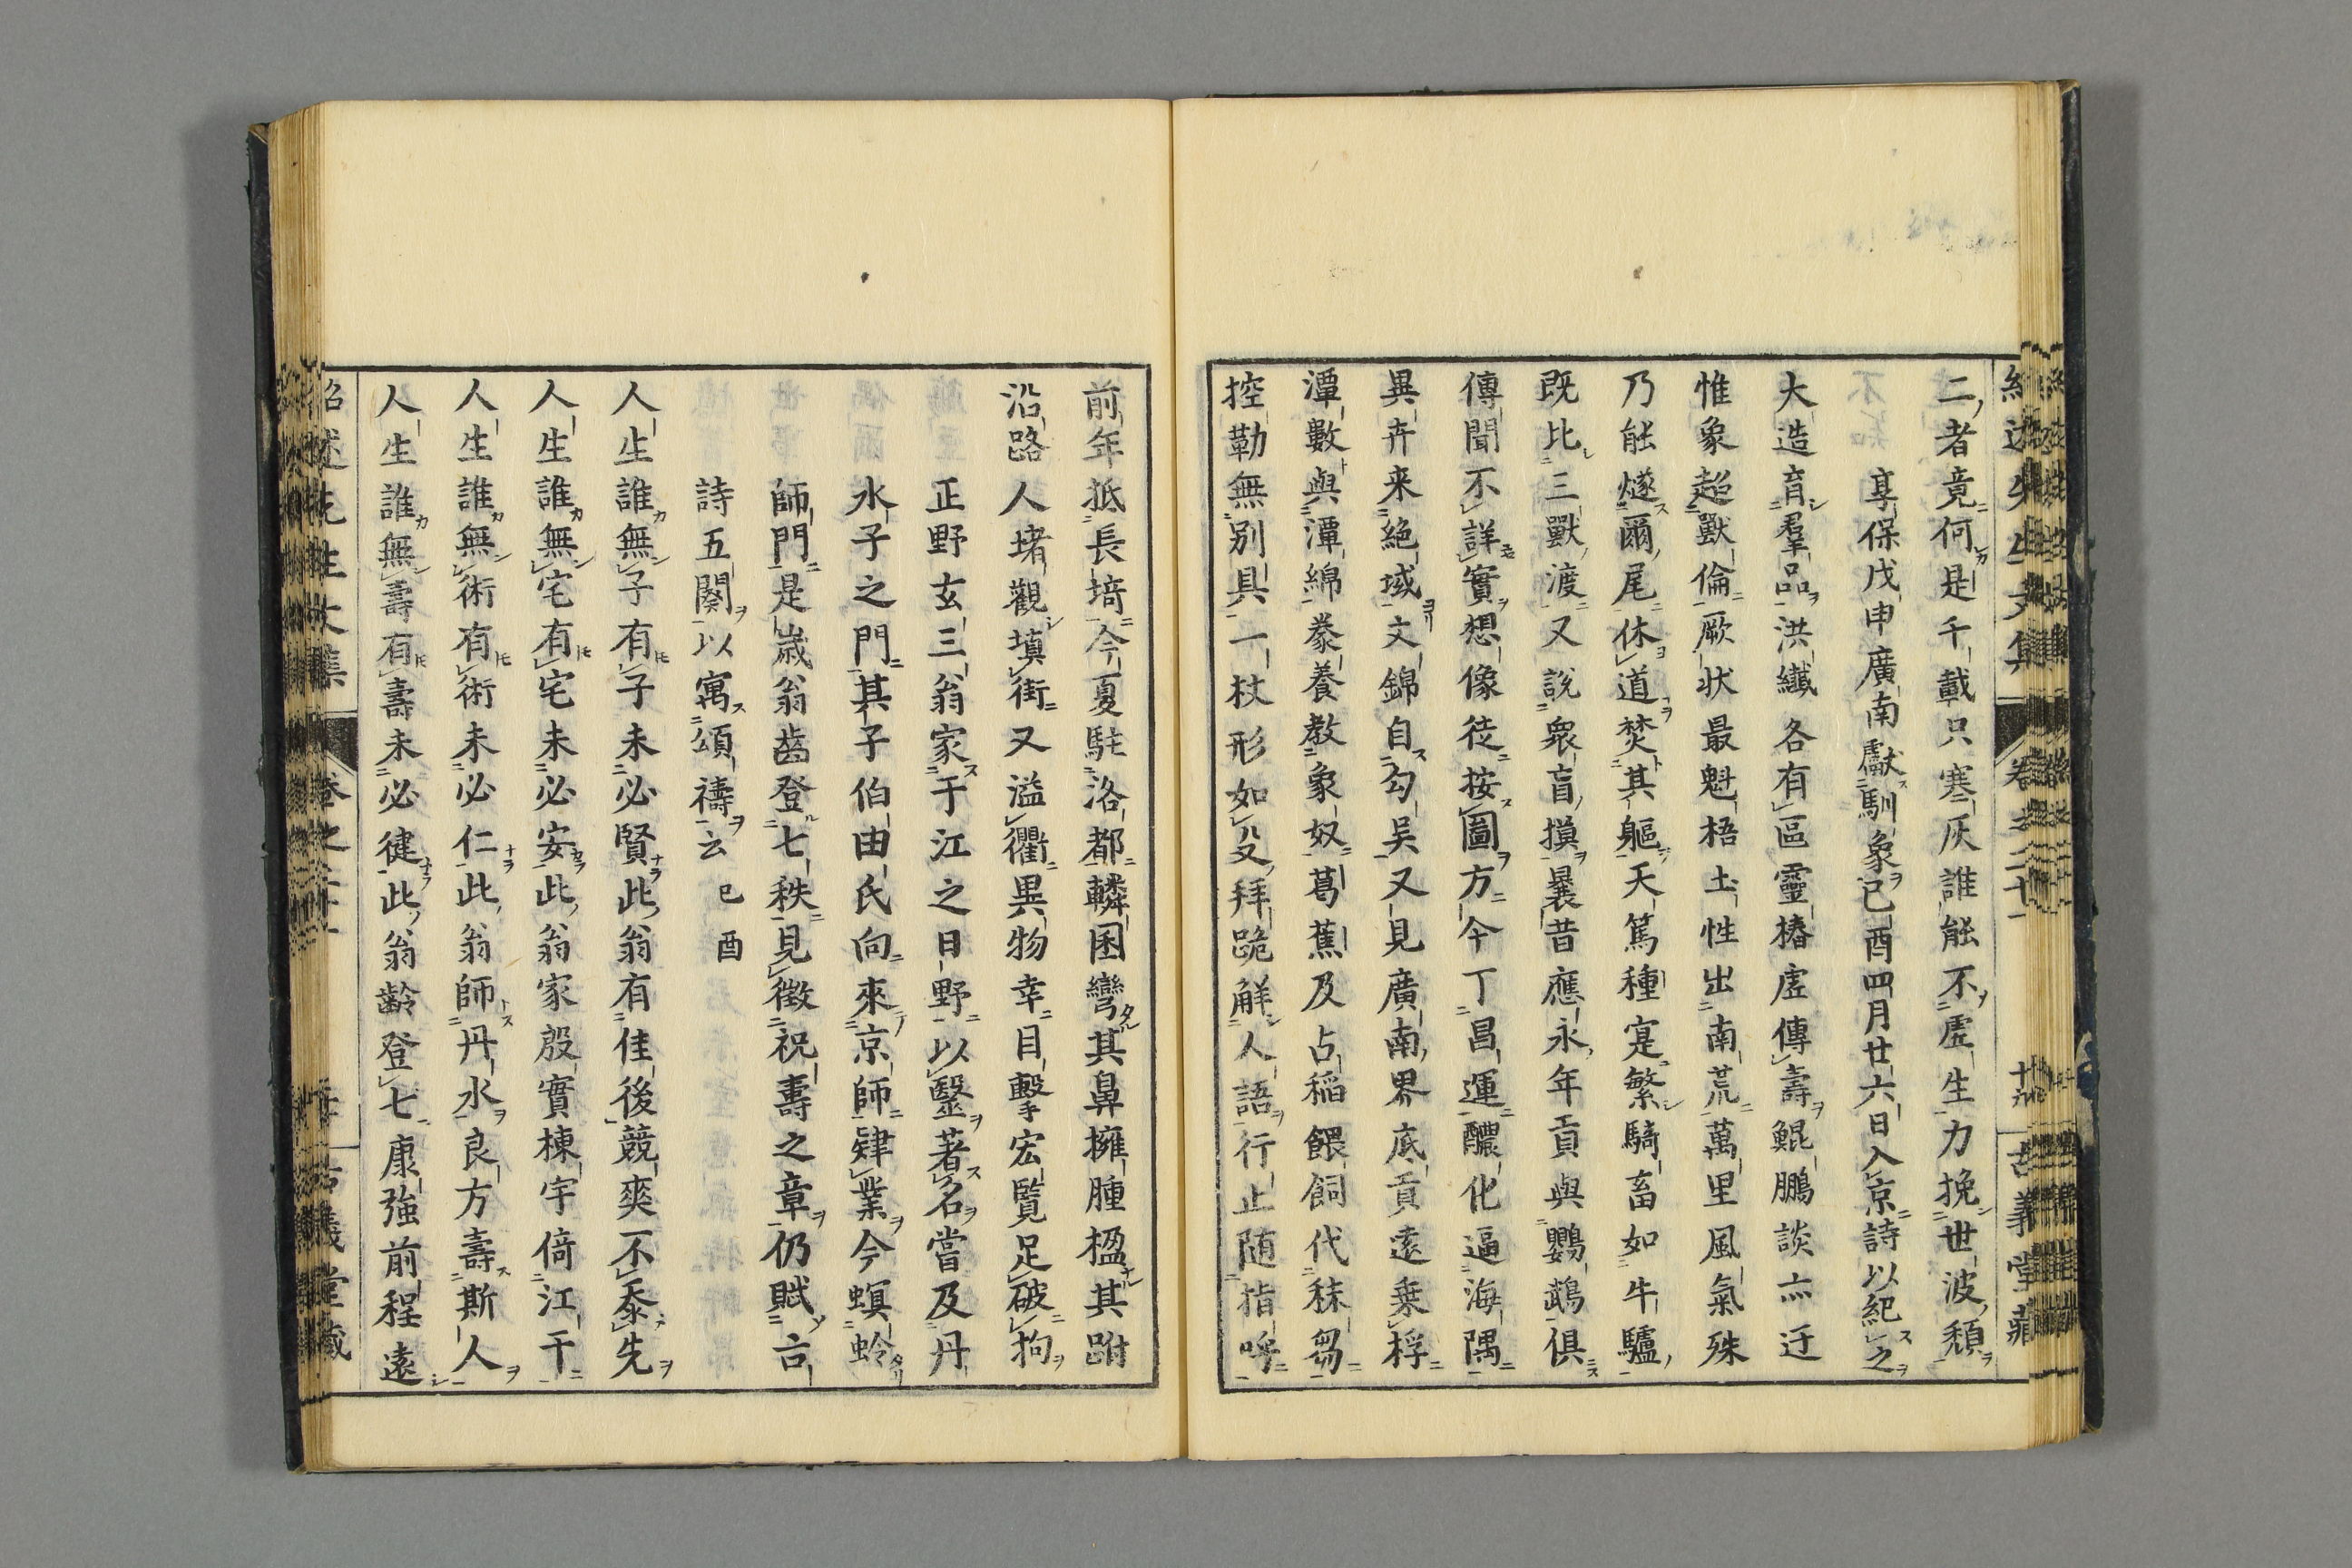 二者竟何是千載只寒灰誰能不虛生力挽世波頹
享保戊申廣南獻馴象已酉四月廿六日入京詩以紀之
大造育羣品洪纖各有區靈椿虛傳壽鯤鵬談亦迂
惟象超獸倫厥状最魁梧土性出南荒萬里風氣殊
乃能燧爾尾休道焚其軀天篤種寔繁騎畜如牛驢
既比三獸渡又說衆盲摸曩昔應永年貢與鸚鵡俱
傳聞不詳實想像徒按圖方今丁昌運醲化逼海隅
異卉来絶域文錦自勾吴又見廣南界底貢遠乗桴
潭數與潭綿豢養教象奴葛蕉及占稲餵飼代秣芻
控勒無別具一杖形如殳拜跪解人語行止随指呼
前年抵長埼今夏駐洛都轔囷彎其鼻擁腫楹其跗
沿路人堵觀塡街又溢衢異物幸目擊宏覧足破拘
正野玄三翁家于江之日野以毉著名當及丹
水子之門其子伯由氏向來京師肄業今螟蛉
師門是歳翁齒登七秩見徴祝壽之章仍賦古
詩五闋以寓頌禱云 已酉
人生誰無子有子未必賢此翁有佳後競爽不忝先
人生誰無宅有宅未必安此翁家殷實棟宇倚江干
人生誰無術有術未必仁此翁師丹水良方壽斯人
人生誰無壽有壽未必健此翁齢登七康強前程遠
紹述先生文集 卷之二十一 古義堂藏